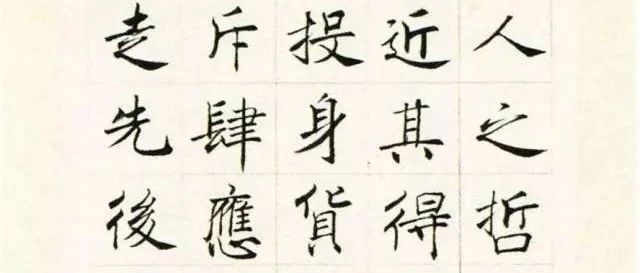 人之哲
近其得
投身貨
斥肆應
走先後